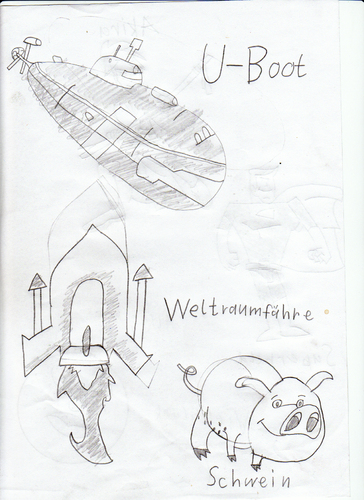 U-Boot
Weltraumfähre
Schwein